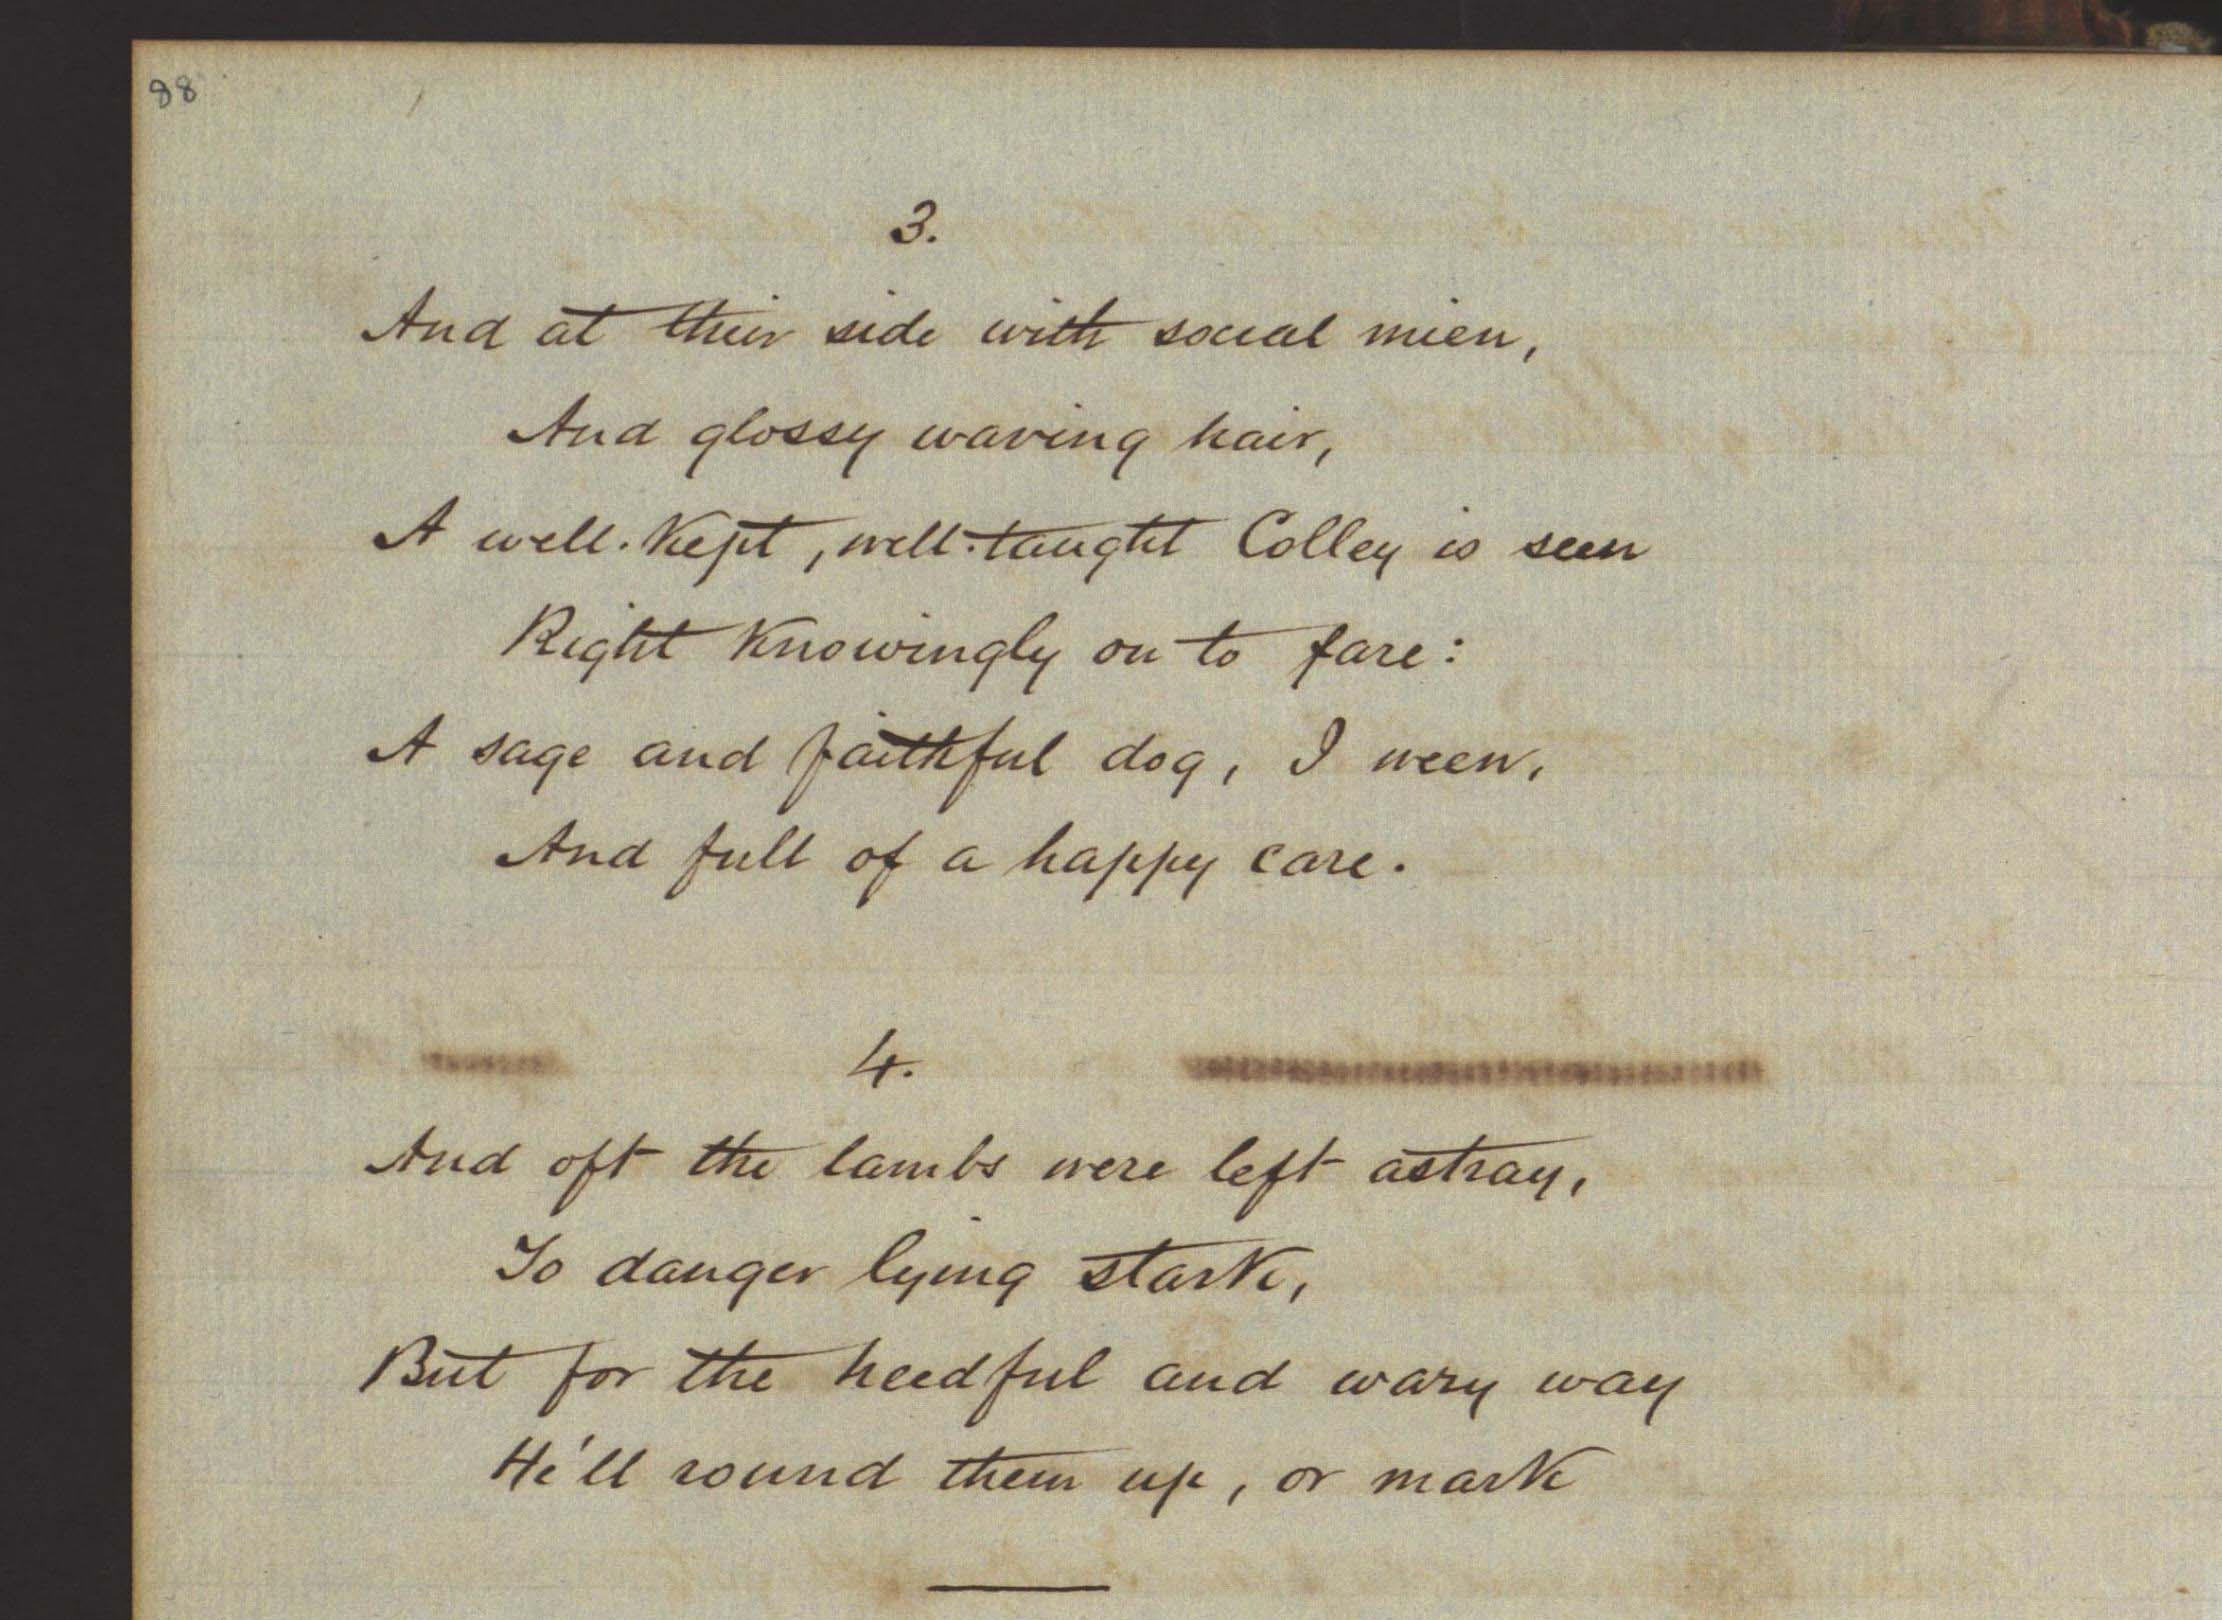 88
3.
And at their side with social mien,
And glossy waving hair,
A well-kept, well-taught Colley is seen
Right knowingly on to fare:
A sage and faithful dog, I ween,
And full of a happy care.
4.
And oft the lambs were left astray,
To danger lying stark,
But for the heedful and wary way
He'll round them up, or mark